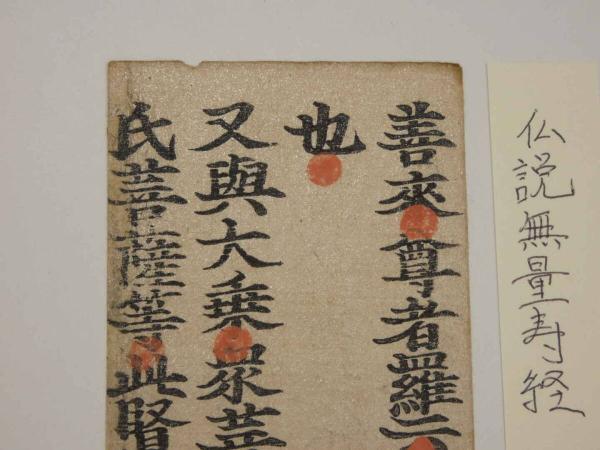 仏説無量寿経
善來尊者羅
也
又與大乗衆菩
氏菩薩等此賢